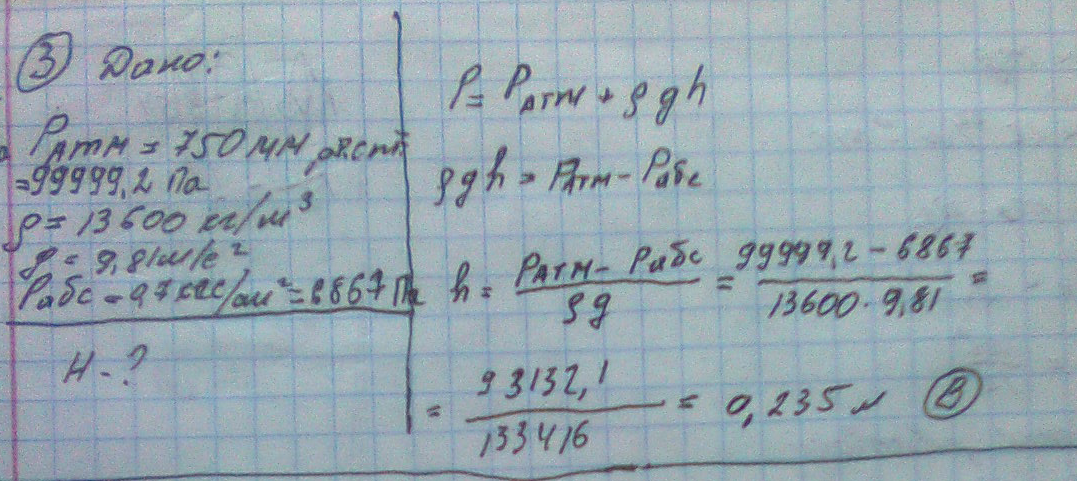 ③ Дано:
Pатм = 750 мм рт.ст.
= 99999,2 Па
ρ = 13600 кг/м³
g = 9,81 м/с²
Pабс = 0,7 кгс/см² = 6867 Па
H - ?
P = Pатм + ρgh
ρgh = Pатм - Pабс
h = (Pатм - Pабс)/(ρg) = (99999,2 - 6867)/(13600 · 9,81) =
= 93132,1/133416 = 0,235 м Ⓑ